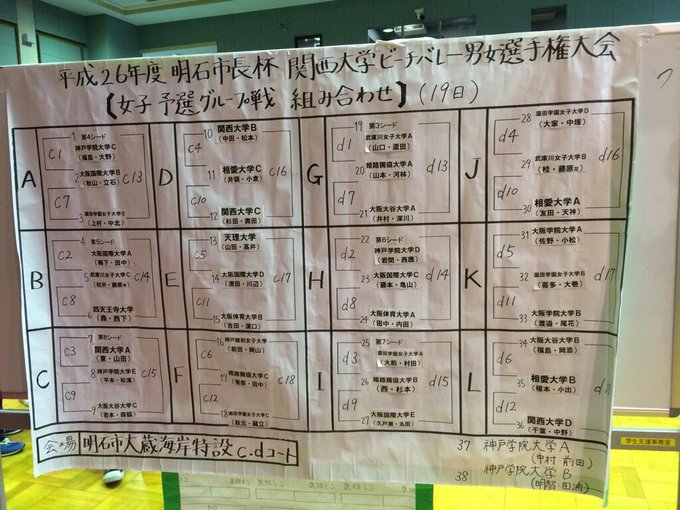 平成26年度 明石市長杯 関西大学ビーチバレー男女選手権大会
【女子 予選グループ戦 組み合わせ】(19日)
A
1 第4シード
神戸学院大学C
(福島・大野)
2 大阪国際大学B
(秋山・立石)
3 園田学園女子大学E
(上村・中北)
C1
C7
C13
D
10 関西大学B
(中田・松本)
11 相愛大学C
(井領・小倉)
12 関西大学C
(杉田・奥田)
C4
C10
C16
G
19 第3シード
武庫川女子大学A
(山口・直田)
20 姫路獨協大学A
(山本・河林)
21 大阪大谷大学A
(井村・深川)
d1
d7
d13
J
28 園田学園女子大学D
(大家・中塚)
29 武庫川女子大学B
(桂・藤原)
30 相愛大学A
(友田・天神)
d4
d10
d16
B
4 第5シード
大阪国際大学A
(梅下・田中)
5 武庫川女子大学C
6 四天王寺大学
(森・西下)
C2
C8
C14
E
13 天理大学
(山田・高井)
14 大阪国際大学D
(清田・川辺)
15 大阪体育大学B
(吉田・溝口)
C5
C11
C17
H
22 第6シード
神戸学院大学D
23 大阪国際大学C
(藤本・亀山)
24 大阪体育大学A
(田中・内田)
d2
d8
d14
K
31 大阪学院大学A
(佐野・小松)
32 園田学園女子大学B
(喜多・大巻)
33 大阪大谷大学B
(渡邉・尾花)
d5
d11
d17
C
7 関西大学A
(東・山田)
8 神戸学院大学
(平本・松浦)
9 大阪大谷大学C
(岩本・森脇)
C3
C9
C15
F
16 神戸親和女子大学
(前田・岡山)
17 姫路獨協大学C
18 園田学園女子大学C
C6
C12
C18
I
25 第7シード
園田学園女子大学A
(大前・村田)
26 姫路獨協大学B
(西・杉本)
27 大阪学院大学
d3
d9
d15
L
34 大阪大谷大学B
(福島・岡添)
35 相愛大学B
(榎本・小出)
36 関西大学D
(千葉・中野)
d6
d12
会場 明石市大蔵海岸特設 c.dコート
37 神戸学院大学A
(中村 前田)
38 神戸学院大学B
学生支援事務室